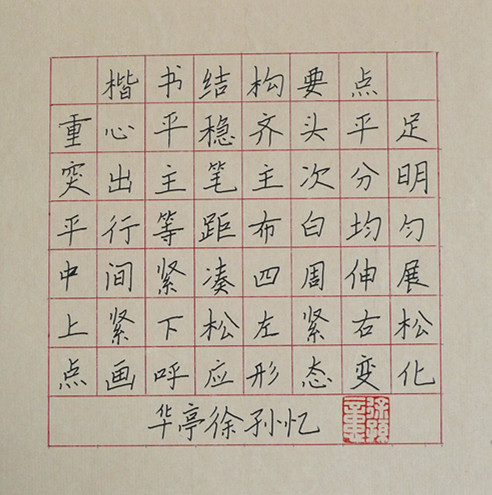 楷书结构要点
重心平稳齐头平足
突出主笔主次分明
平行等距布白均匀
中间紧凑四周伸展
上紧下松左紧右松
点画呼应形态变化
华亭徐孙忆